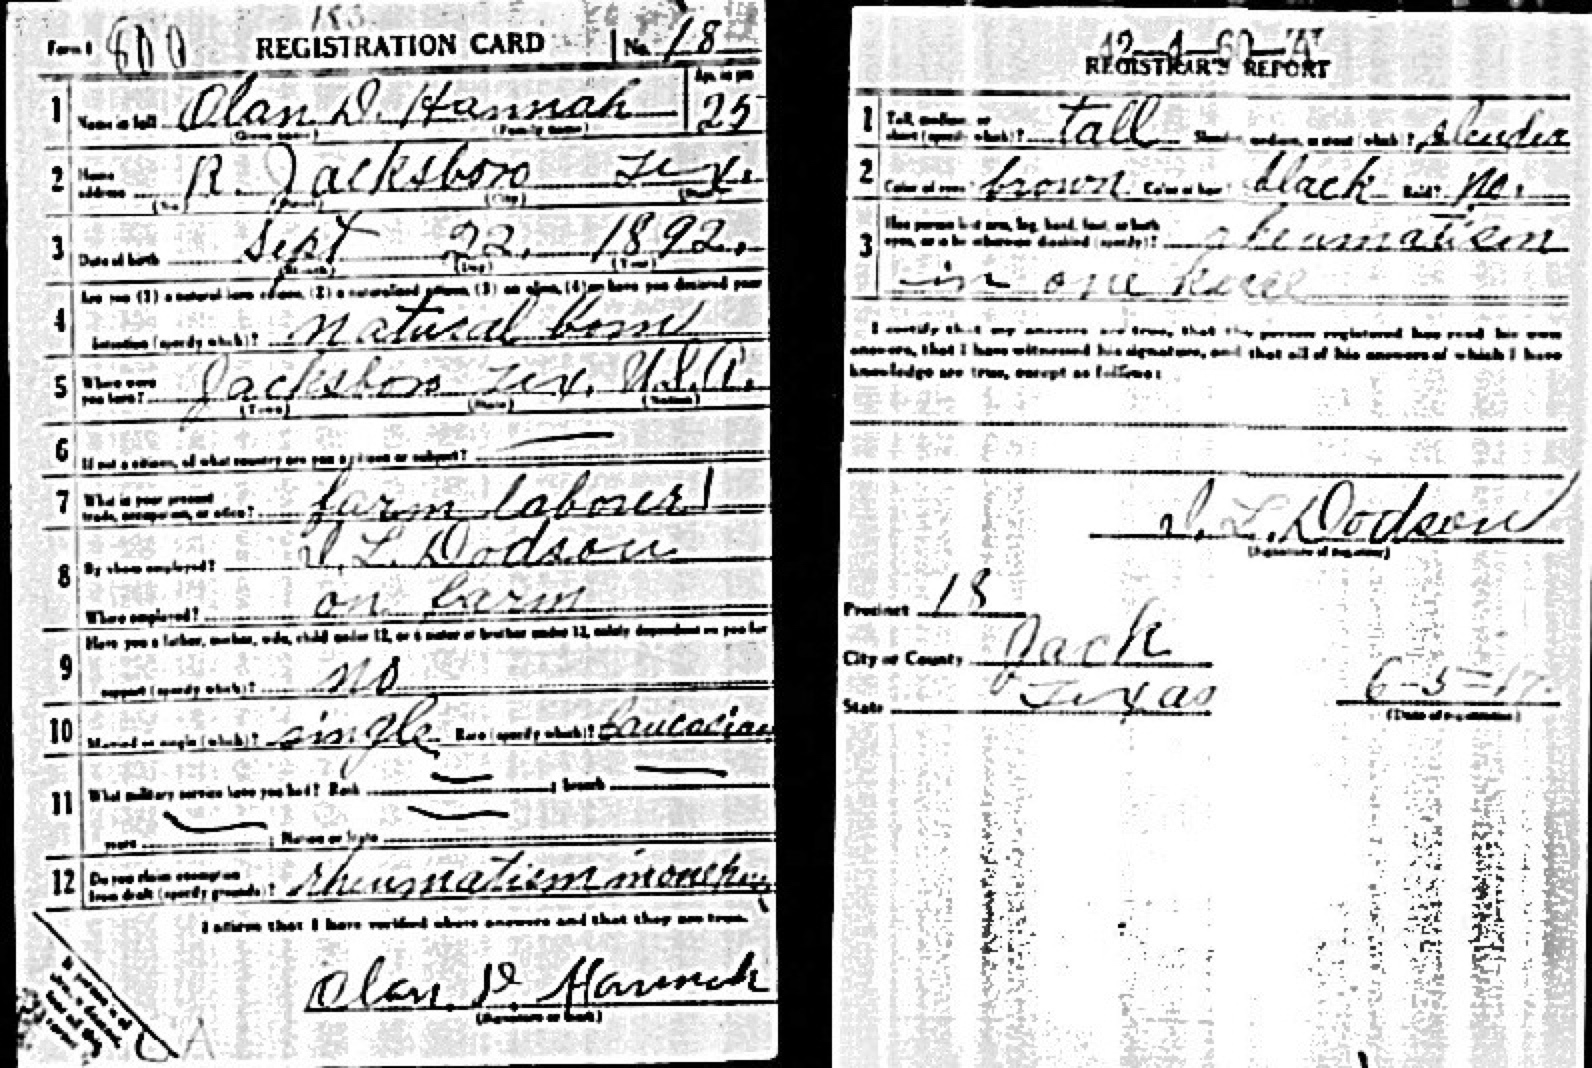 183
Form 1 600 REGISTRATION CARD No. 18
1 Name in full Olan D. Hannah Age, in yrs 25
(Given name) (Family name)
2 Home address R. Jacksboro Tex.
(No.) (Street) (City) (State)
3 Date of birth Sept 22, 1892.
(Month) (Day) (Year)
Are you (1) a natural born citizen, (2) a naturalized citizen, (3) an alien, (4) or have you declared your
4 intention (specify which)? natural born
5 Where were you born? Jacksboro Tex. U.S.A.
(Town) (State) (Nation)
6 If not a citizen, of what country are you a citizen or subject?
7 What is your present trade, occupation, or office? farm laborer
8 By whom employed? I. L. Dodson
Where employed? on farm
Have you a father, mother, wife, child under 12, or a sister or brother under 12, solely dependent on you for
9 support (specify which)? no
10 Married or single (which)? single Race (specify which)? Caucasian
11 What military service have you had? Rank ; branch
years ; Nation or State
12 Do you claim exemption from draft (specify grounds)? rheumatism in one knee
I affirm that I have verified above answers and that they are true.
Olan D. Hannah
(Signature or mark)
42-4-60-"A"
REGISTRAR'S REPORT
1 Tall, medium, or short (specify which)? tall Slender, medium, or stout (which)? slender
2 Color of eyes? brown Color of hair? black Bald? no.
3 Has person lost arm, leg, hand, foot, or both eyes, or is he otherwise disabled (specify)? rheumatism
in one knee
I certify that my answers are true, that the person registered has read his own
answers, that I have witnessed his signature, and that all of his answers of which I have
knowledge are true, except as follows:
I. L. Dodson
(Signature of registrar)
Precinct 18
City or County Jack
State Texas 6-5-17.
(Date of registration)